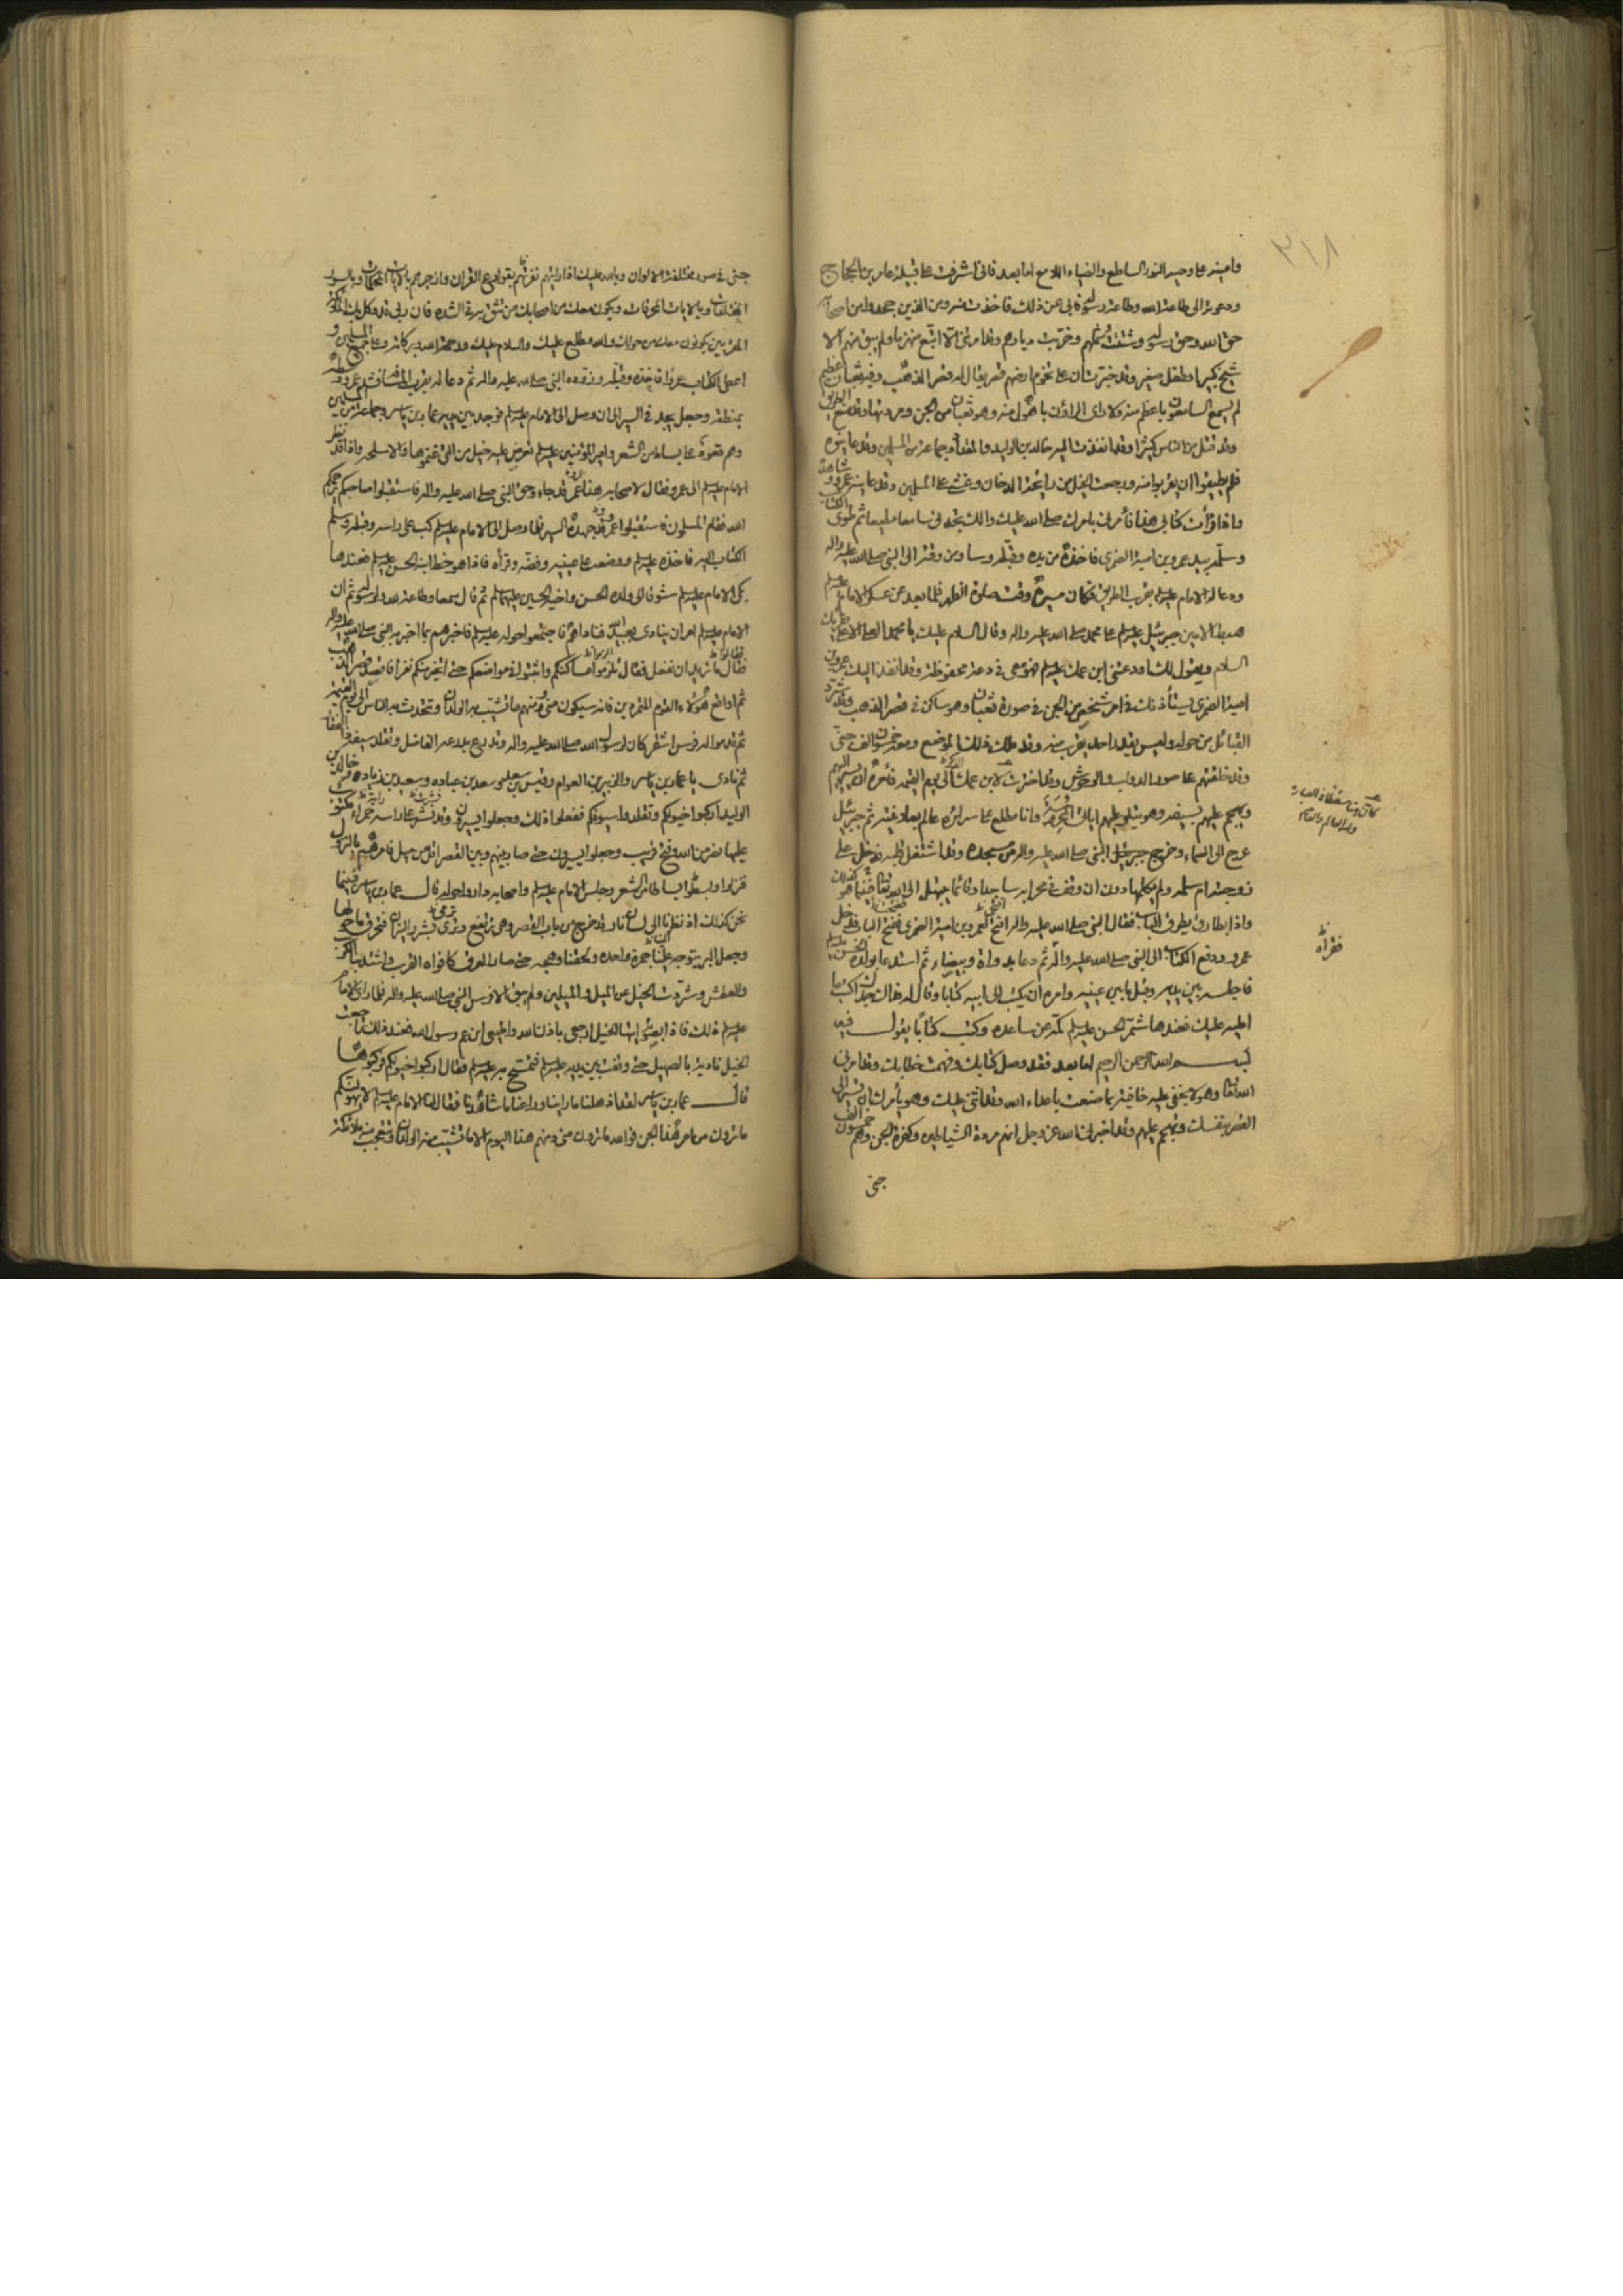 ٣١٨
وامينه على وحيه النور الساطع والضياء اللامع اما بعد فانى اشرفت على قبيلة عامر بن الحجاج
ودعوته الى طاعة الله وطاعة رسوله فابى عن ذلك فاخذت منه ومن الذين جحدوا من اصحابه
حق الله وحق رسوله وشتت شملهم وخربت ديارهم وقد امرتنى الا اتبع منهزما ولم يبق منهم الا
شيخ كبير او طفل صغير وقد خبرت ان على تخوم ارضهم قصر يقال له قصر الذهب وفيه ثعبان عظيم
لم يسمع السامعون باعظم منه ولا راى الراؤن باهول منه وهو ثعبان من الجن ومردتها وقد منع الطريق
وقد قتل من الناس كثيرا وقد انفذت اليه خالد بن الوليد والمقداد وجماعة من المسلمين وقد عاينوه
فلم يطيقوا ان يقربوا منه ورجعت الخيل من رايحة الدخان وغشى على المسلمين وقد عاينه عمرو وشاهده
واذا قرأت كتابى هذا فأمرنى بامرك صلى الله عليك والك تجدنى سامعا مطيعا ثم طوى الكتاب
وسلمه بيد عمرو بن امية الضمرى فاخذه من يده وقبله وسار من وقته الى النبى صلى الله عليه واله
ودعا له الامام عليه السلم بقرب الطريق فكان مسيره وقت صلوة الظهر فلما بعد عن عسكر الامام عليه السلم
هبط الامين جبرئيل عليه السلم على محمد صلى الله عليه واله وقال السلام عليك يا محمد العلى الاعلى يقرئك
السلام ويقول لك اودعتنى ابن عمك عليه السلم فهو منى فى دعة محفوظة وقد انفذ اليك عمرو بن
امية الضمرى يستأذنك فى امر شخص من الجن فى صورة ثعبان وهو ساكن فى قصر الذهب وقد شرد
القبائل من حوله وليس يقدر احد يقرب منه وقد ملك ذلك الموضع ومعه خمسون الف جنى
وقد خلقتهم على صور الدواب والوحوش وقد اخترت لابن عمك الذكر الى يوم القيمة فأمره ان يسير اليهم
ويهجم عليهم بسيفه وهو يتلو عليهم اياتى وانا مطلع على سرائره عالم بصلاح نيته ثم جبرئيل
عرج الى السماء وخرج جبرئيل النبى صلى الله عليه واله من مسجده وقد اشتغل قلبه فدخل على
زوجته ام سلمه ولم يكلمها دون ان وقف فى محرابه ساجدا وقائما يبتهل الى الله تعالى فبينما هو كذلك
واذا بطارق يطرق الباب فقال النبى صلى الله عليه واله افتح لعمرو بن امية الضمرى ففتح الباب فدخل
عمرو ودفع الكتاب الى النبى صلى الله عليه واله ثم دعا بدواة وبيضاء ثم استدعا بولده الحسن عليه السلم
فاجلسه بين يديه وقبل مابين عينيه وامره ان يكتب الى ابيه كتابا وقال له هناك جدك اكتب ما
امليه عليك فعندها شمر الحسن عليه السلم كمه عن ساعده وكتب كتابا يقول فيه
بسم الله الرحمن الرحيم اما بعد فقد وصل كتابك وفهمت خطابك وقد امرنى
الله تعالى وهو لا يخفى عليه خافية بما صنعت باعداء الله وقد اثنى عليك وهو يأمرك ان تسير الى
القصر بنفسك وتهجم عليهم وقد اخبرنى الله عز وجل انهم مردة الشياطين وكفرة الجن وهم خمسون الف
جنى
فقراه
جنى فى صور مختلفة الالوان وبالله عليك اذا رايتهم نفرتهم بقوارع القران وازجرهم بالايات المحكمات وبالسور
المختلفات وبالايات المحرقات ويكون معك من اصحابك من تثق به فى الشدة فان ربى قد وكل بك الملائكة
المقربين يكونون معك من حولك والله مطلع عليك والسلام عليك ورحمة الله وبركاته وعلى جميع المسلمين و
اعطى الكتاب عمروا فاخذه وقبله وزوده النبى صلى الله عليه واله ثم دعا له بقرب المسافة فشد عمرو وسطه
بمنطقة وجعل يجد فى السير الى ان وصل الى الامام عليه السلم فوجد بين يديه عمار بن ياسر وجماعة من المسلمين
وهم قعود على بساط من الشعر وامير المؤمنين عليه السلم تعرض عليه خيل من التى غنموها والاسلحه واذا قد نظر
الامام عليه السلم الى عمرو فقال لاصحابه هذا عمرو قد جاء وحق النبى صلى الله عليه واله فاستقبلوا صاحبكم يرحمكم
الله فقام المسلمون فاستقبلوا عمرو وقد جهده السير فلما وصل الى الامام عليه السلم كب على راسه وقبله وسلم
الكتاب اليه فاخذه عليه السلم ووضعه على عينيه وفضه وقرأه فاذا هو خط ابنه الحسن عليه السلم فعندها
بكى الامام عليه السلم شوقا الى ولده الحسن واخيه الحسين عليهما السلم ثم قال سمعا وطاعة لله ولرسوله ثم ان
الامام عليه السلم امر ان ينادى بعبيد الله فناداهم فاجتمعوا حوله عليه السلم فاخبرهم بما اخبر به النبى صلى الله عليه واله
فقال ما تريد ان تفعل فقال تلزموا اماكنكم واثبتوا فى مواضعكم حتى اتخير منكم نفرا فاقصد قصر الذهب
ثم اواقع هؤلاء القوم المتمردين فانه سيكون منى ومنهم ما تشيب به الولدان وتتحدث به الناس الى يوم القيمة
ثم قدموا له فرس اشقر كان لرسول الله صلى الله عليه واله وتدرع بدرعه الفاضل وتقلد سيفه ذو الفقار
ثم نادى يا عمار بن ياسر والزبير بن العوام وقيس بن سعد وسعد بن عباده وسعيد بن زياد وخالد بن
الوليد اركبوا خيولكم وتقلدوا سيوفكم ففعلوا ذلك وجعلوا يسيرون وقد نشر على راسه راية حمراء مكتوب
عليها نصر من الله وفتح قريب وجعلوا يسيرون حتى صار بينهم وبين القصر اقل من ميل فامرهم بالنزول
فنزلوا وبسطوا بساطا من الشعر وجلس الامام عليه السلم واصحابه داروا حوله قال عمار بن ياسر فبينما
نحن كذلك اذ نظرنا الى لسان نار قد خرج من باب القصر وهى ترتفع وترمى بشرر النيران فتحرق ما حولها
وجعل البر يتوجه علينا جمرة واحده ولحقنا وهجه حتى صار العرق كافواه القرب واشتد بنا الكرب
والعطش وشردت الخيل عن الميل والميلين ولم يبق الا فرس النبى صلى الله عليه واله فلما راى الامام
عليه السلم ذلك فاذا بصوته ايتها الخيل ارجعى باذن الله واجيبى ابن عم رسول الله فعند ذلك تراجعت
الخيل نادية بالصهيل حتى وقفت بين يديه عليه السلم فتمسح بيده عليه السلم فقال اركبوا خيولكم فركبوها
قال عمار بن ياسر لقد اذهلنا ما راينا وراعنا ما شاهدنا فقال لنا الامام عليه السلم لا يهولنكم
ما ترون من امر هذا الجن فوالله ما ترون منى ومنهم هذا اليوم الا ما تشيب منه الولدان وتتعجب منه ملائكة